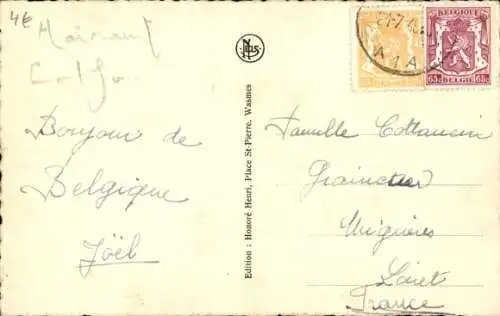 4€
Hainaut
Bonjour de
Belgique
Joël
Nels
Edition : Honoré Henri, Place St-Pierre, Wasmes
BELGIQUE
65c BELGIË 65c
Famille Cottansin
Grainetier
Mignères
Loiret
France